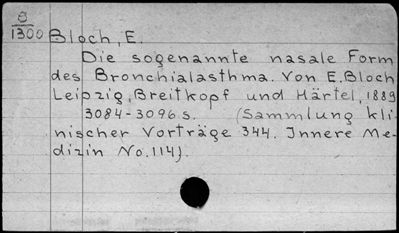 O
1300
Bloch, E.
Die sogenannte nasale Form
des Bronchialasthma. Von E. Bloch
Leipzig, Breitkopf und Härtel, 1889
3084-3096 s. (Sammlung kli-
nischer Vorträge 344. Innere Me-
dizin No. 114).